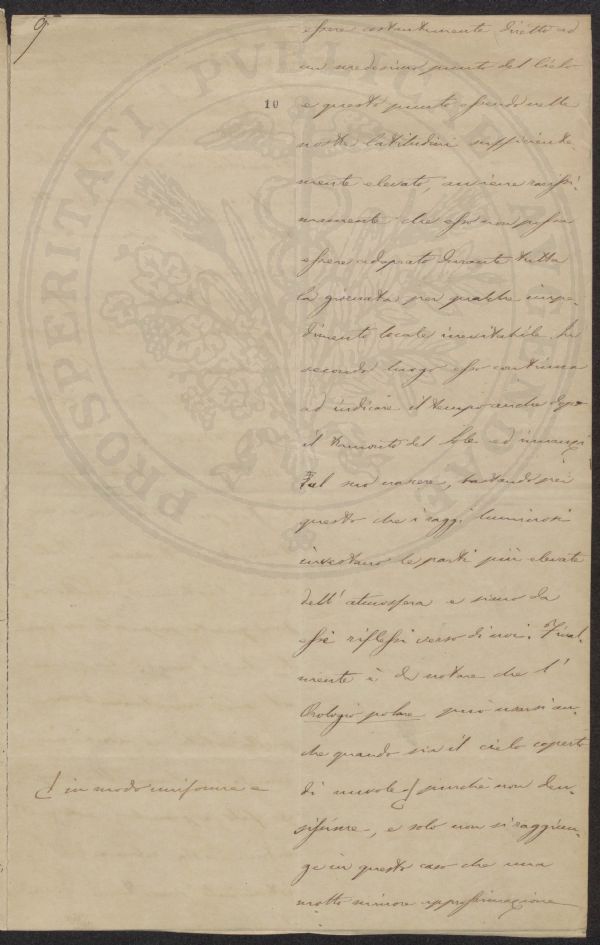 9
essere costantemente diretto ad
un medesimo punto del Cielo
10
e questo punto essendo nelle
nostre latitudini sufficiente-
mente elevato, avviene rarissi-
mamente che esso non possa
essere adoprato durante tutta
la giornata per qualche impe-
dimento locale inevitabile. In
secondo luogo esso continua
ad indicare il tempo anche dopo
il tramonto del Sole ed innanzi
al suo nascere, bastando per
questo che i raggi luminosi
investano le parti più elevate
dell' atmosfera e sieno da
esse riflessi verso di noi. Final-
mente è da notare che l'
Orologio polare può usarsi an-
che quando sia il cielo coperto
di nuvole purchè non den-
sissime, e solo non si raggiun-
ge in questo caso che una
molto minore approssimazione
in modo uniforme e
PROSPERITATI PVBLICAE